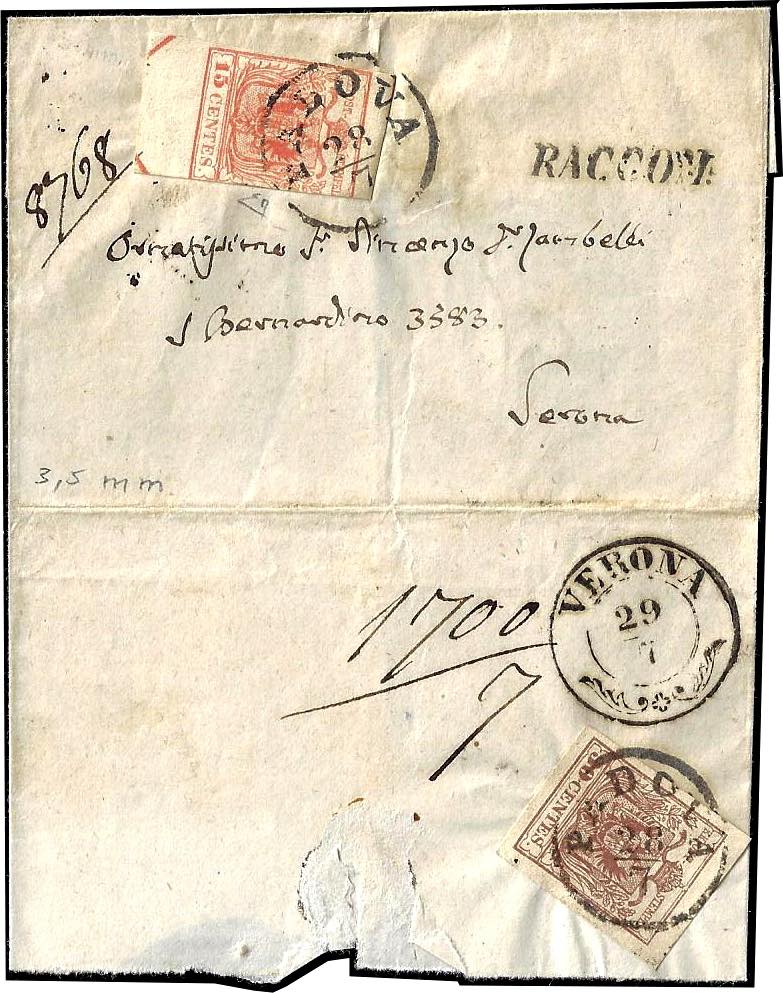 15 CENTES.
PADOVA
28
7
RACCOM.
8768
S Bernardino 3583.
Verona
3,5 mm
VERONA
29
7
1700
7
30 CENTES.
PADOVA
28
7
STEMPEL